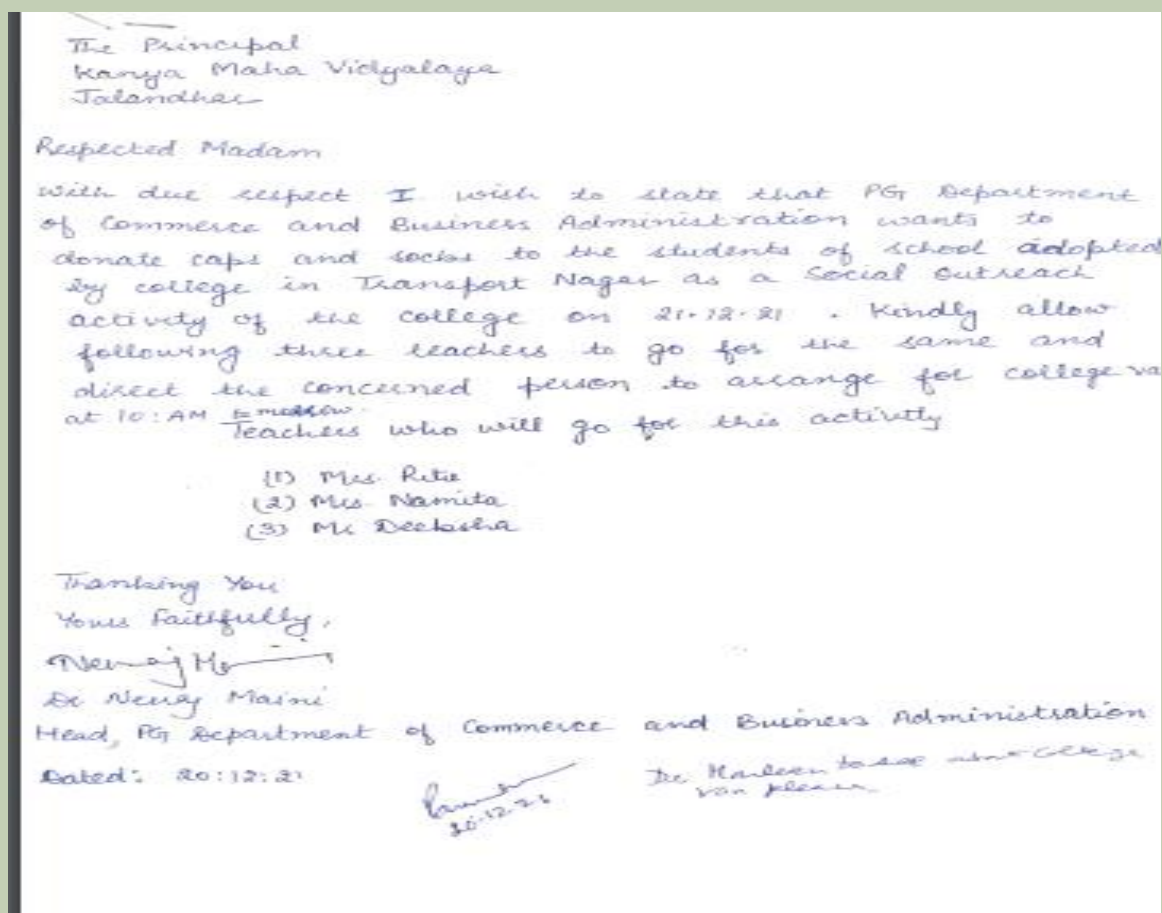 The Principal
Kanya Maha Vidyalaya
Jalandhar
Respected Madam
With due respect I wish to state that PG Department
of Commerce and Business Administration wants to
donate caps and socks to the students of school adopted
by college in Transport Nagar as a Social Outreach
activity of the college on 21.12.21 . Kindly allow
following three teachers to go for the same and
direct the concerned person to arrange for college va
at 10:AM tomorrow.
Teachers who will go for this activity
(1) Mrs. Ritu
(2) Mrs. Namita
(3) Ms Deeksha
Thanking You
Yours Faithfully,
Neeraj
Dr Neeraj Maini
Head, PG Department of Commerce and Business Administration
Dated: 20:12:21
20.12.21
Dr. Harleen to see about College
van please